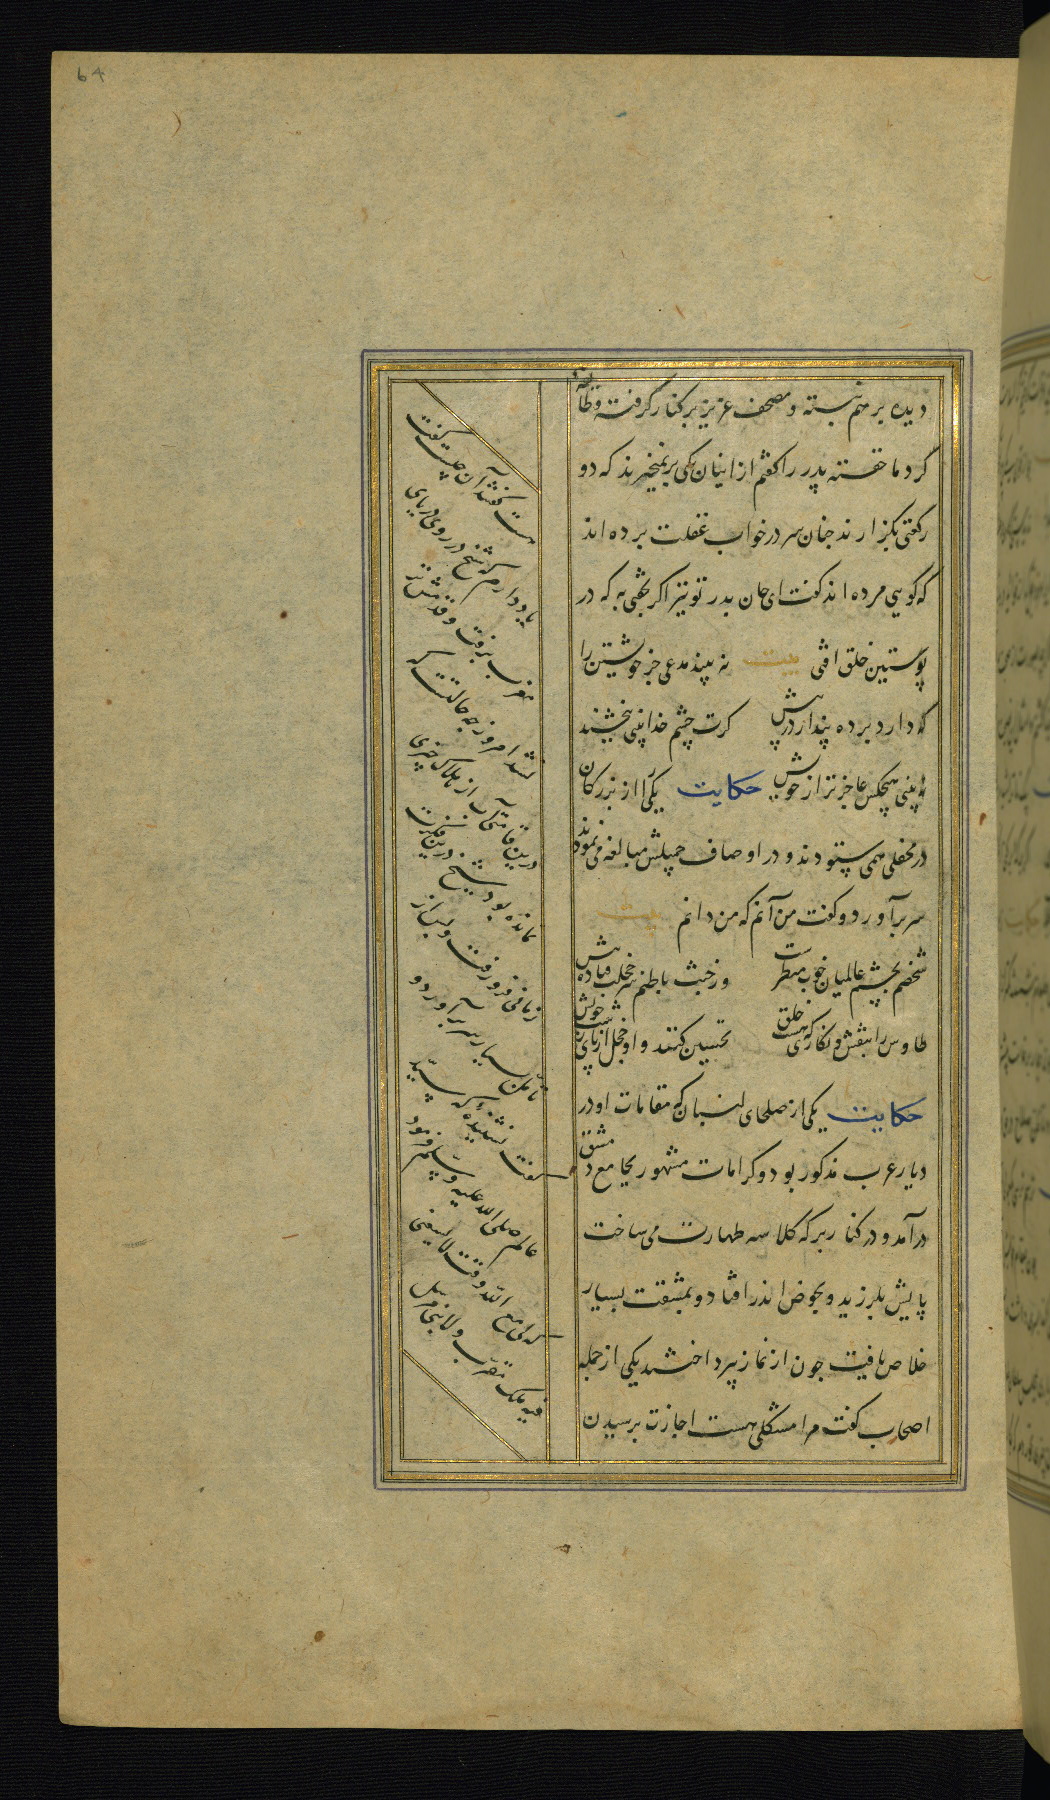 64
دیده بر هم نبسته و مصحف عزیز بر کنار گرفته و طایفه
کرد ما خفته پدر را کفتم از اینان یکی سر برنمیخیرند که دو
رکعتی بکزارند جنان سر در خواب غفلت برده اند
که کویی مرده اند کفت ای جان بدر تو نیز اکر بخفتی به که در
پوستین خلق افتی بیت نه بیند مدعی جز خویشتن را
که دارد برده پندار در پیش کرت چشم خدا بینی ببخشند
نه بینی هیچکس عاجزتر از خویش حکایت یکی را از بزرکان
در محفلی همی ستودند و در اوصاف جمیلش مبالغه می نمودند
سر برآورد و کفت من آنم که من دانم بیت
شخصم بچشم عالمیان خوب منظرست وز خبث باطنم سر خجلت فتاده پیش
طاوس را بنقش و نکاری که هست خلق تحسین کنند و او خجل از پای زشت خویش
حکایت یکی از صلحای لبنان که مقامات او در
دیار عرب مذکور بود و کرامات مشهور بجامع دمشق
درآمد و در کنار برکه کلاسه طهارت می ساخت
پایش بلرزید و بحوض اندر افتاد و بمشقت بسیار
خلاص یافت جون از نماز بپرداختند یکی از جمله
اصحاب کفت مرا مشکلی هست اجازت برسیدن
هست کفتند آن چیست کفت
یاد دارم که شیخ در روی دریای
مغرب برفت و قدمش تر
نشد امروز چه حالتست که
درین قامتی آب از هلاک چیزی
نمانده بود شیخ درین فکرت
زمانی فرو رفت و بس از
تامل بسیار سر برآورد و
کفت نشنیده که سید
عالم صلی الله علیه و سلم فرمود
لی مع الله وقت لا یسعنی
فیه ملک مقرب و لا نبی مرسل